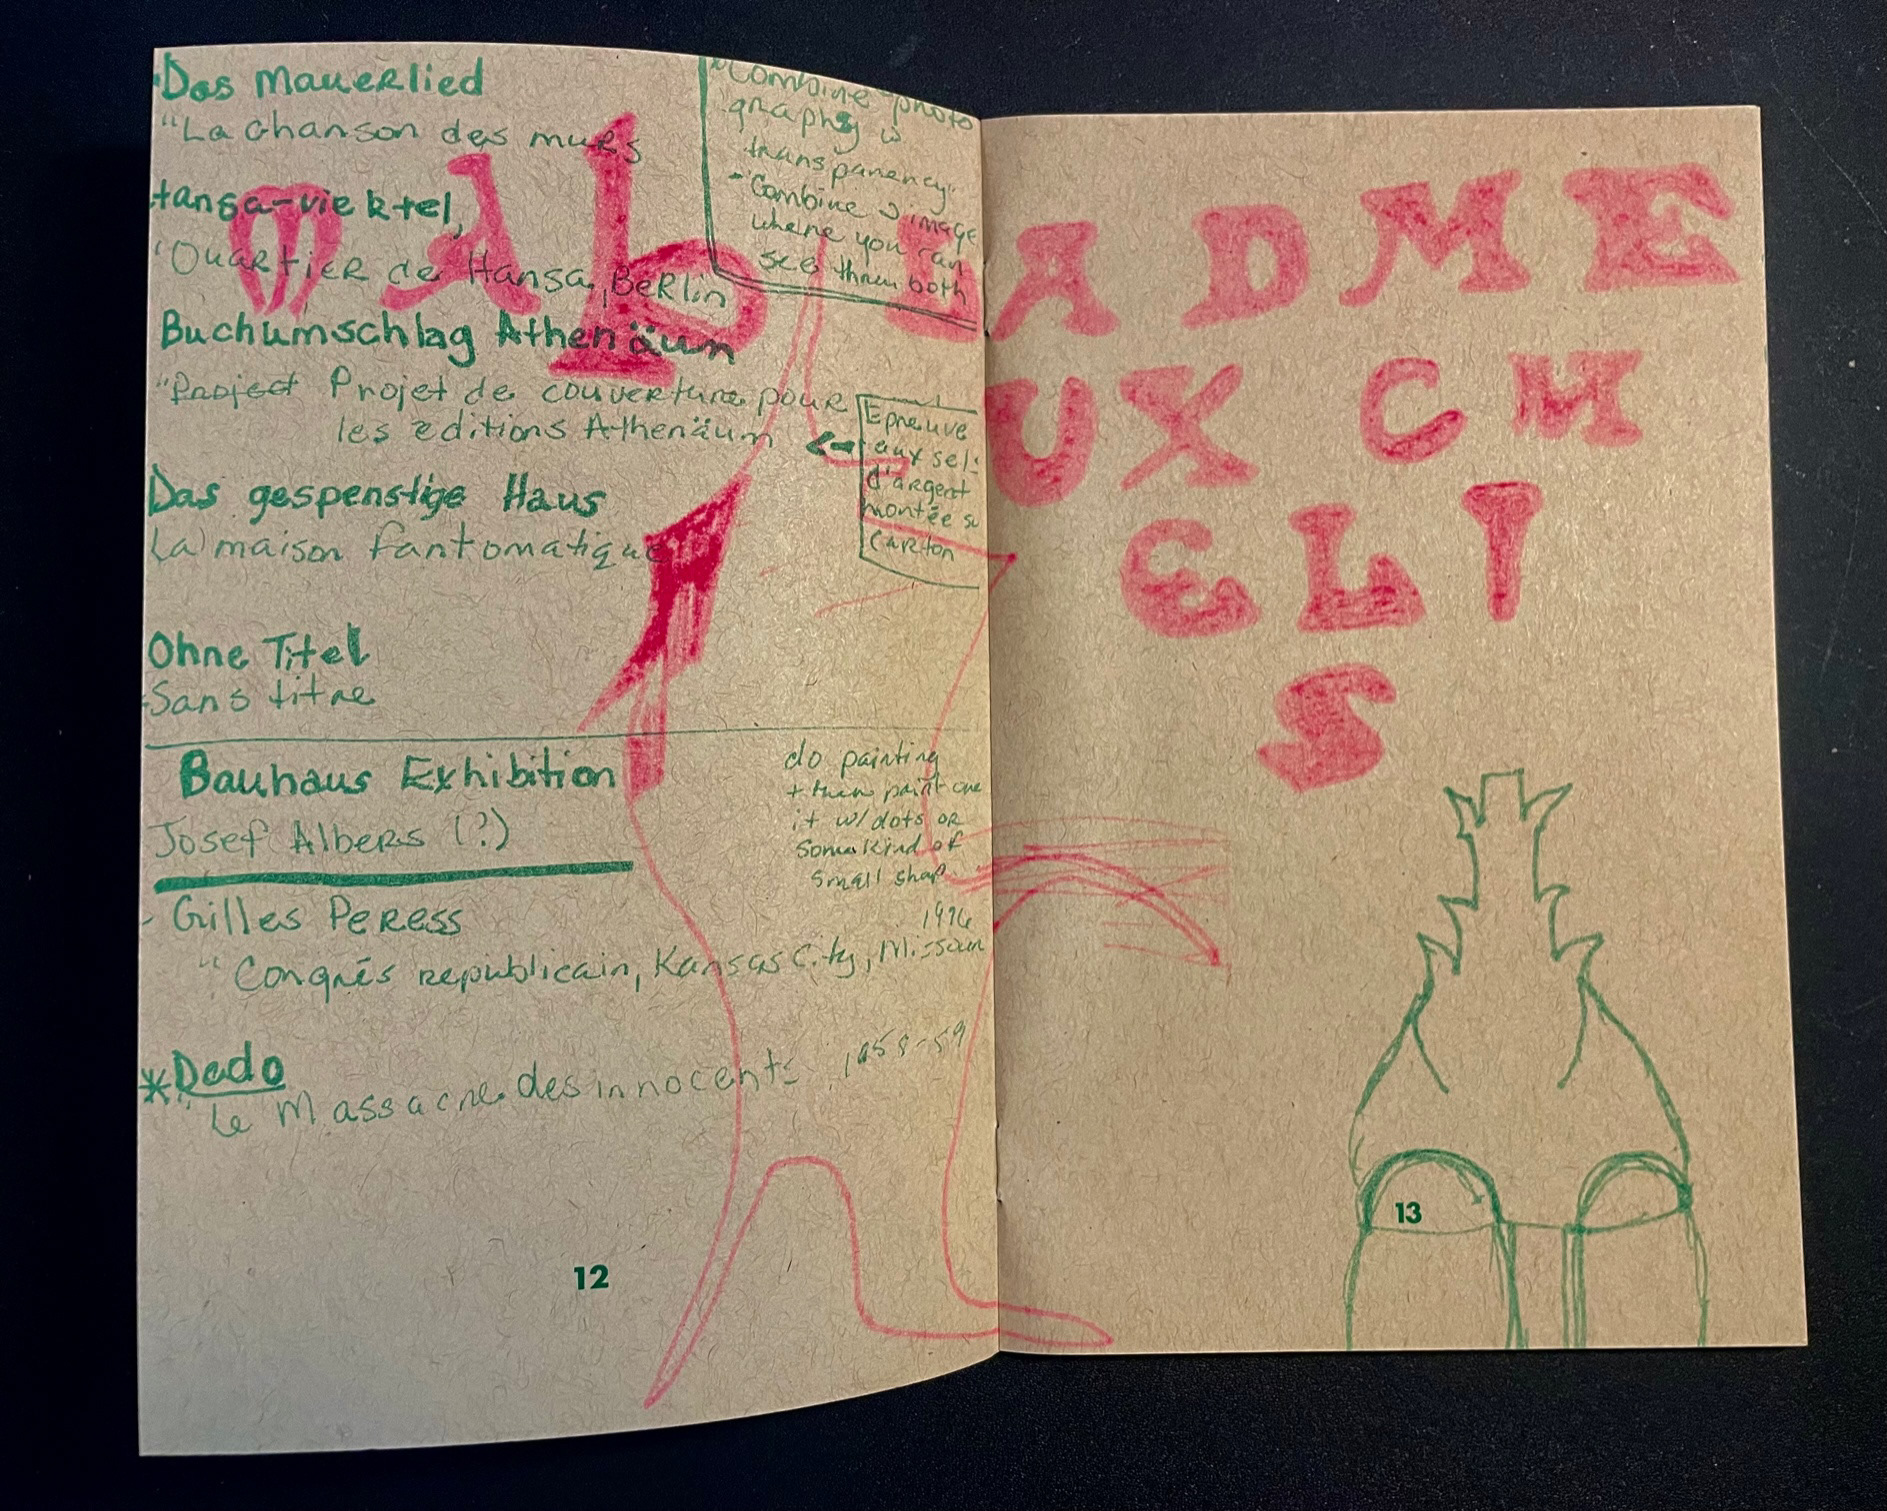 Das Mauerlied
"La chanson des murs
Hansa-viertel,
"Quartier de Hansa, Berlin
Buchumschlag Athenäum
"Project Projet de couverture pour
les editions Athenäum
Das gespenstige Haus
La maison fantomatique
Ohne Titel
Sans titre
"Combine photo
graphy w
transparency"
- "Combine 2 image
where you can
see thru both
Epreuve
aux sel
d'argent
montée su
carton
Bauhaus Exhibition
Josef Albers (?)
do painting
+ then paint over
it w/ dots or
some kind of
small shap
- Gilles Peress
1976
"Congrès republicain, Kansas City, Missouri
*Dado
"Le Massacre des innocents 1958-59
12
m A b L
A D M E
U X C M
E L I
S
13